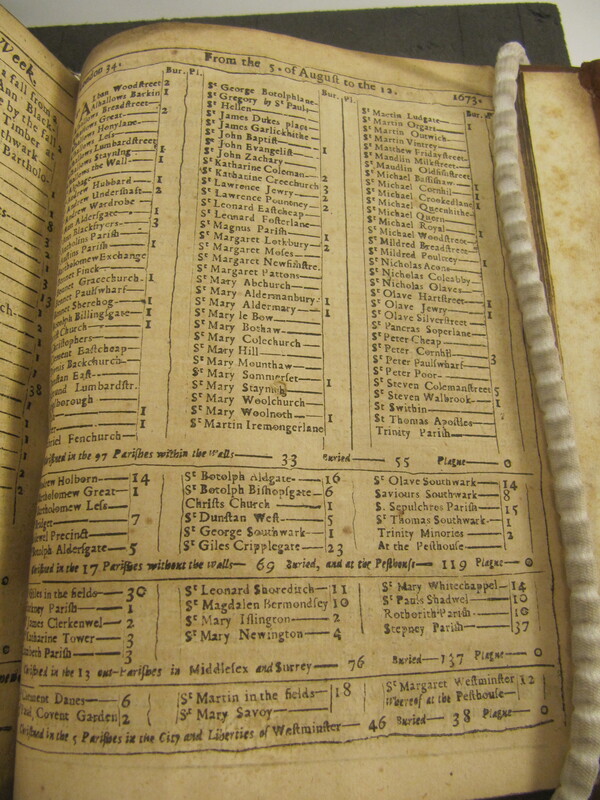 Week.
London 34. From the 5. of August to the 12. 1673.
Bur. Pl.
Alban Woodstreet 2
Alhallows Barkin 2
Breadstreet
Great
Honylane
Less
Lumbardstreet
Stayning 1
the Wall 1
Hubbard 1
Andrew Undershaft 2
Andrew Wardrobe
Ann Aldersgate 1
Ann Blackfryers 3
Parish
Austins Parish 1
Exchange
Bennet Finck
Bennet Gracechurch 1
Bennet Paulswharf
Bennet Sherehog 1
Botolph Billingsgate 1
Christ Church 1
Christophers
Clement Eastcheap
Dionis Backchurch
Dunstan East
Edmund Lumbardstr.
1
1
Gabriel Fenchurch
Bur. Pl.
St George Botolphlane
St Gregory by St Pauls
St Hellen
St James Dukes place
St James Garlickhithe
St John Baptist 1
St John Evangelist
St John Zachary
St Katharine Coleman 2
St Katharine Creechurch 3
St Lawrence Jewry 2
St Lawrence Pountney 2
St Leonard Eastcheap
St Leonard Fosterlane
St Magnus Parish 1
St Margaret Lothbury 2
St Margaret Moses
St Margaret Newfishstre.
St Margaret Pattons
St Mary Abchurch
St Mary Aldermanbury 1
St Mary Aldermary 1
St Mary le Bow
St Mary Bothaw
St Mary Colechurch
St Mary Hill
St Mary Mounthaw
St Mary Sommerset
St Mary Stayning 1
St Mary Woolchurch
St Mary Woolnoth 1
St Martin Iremongerlane
Bur. Pl.
St Martin Ludgate
St Martin Orgars 1
St Martin Outwich
St Martin Vintrey
St Matthew Fridaystreet
St Maudlin Milkstreet
St Maudlin Oldfishstreet
St Michael Bassishaw
St Michael Cornhil 1
St Michael Crookedlane 1
St Michael Queenhithe
St Michael Quern
St Michael Royal
St Michael Woodstreet
St Mildred Breadstreet
St Mildred Poultrey
St Nicholas Acons
St Nicholas Coleabby
St Nicholas Olaves
St Olave Hartstreet 1
St Olave Jewry
St Olave Silverstreet
St Pancras Soperlane
St Peter Cheap
St Peter Cornhil
St Peter Paulswharf 3
St Peter Poor
St Steven Colemanstreet 5
St Steven Walbrook 1
St Swithin
St Thomas Apostles
Trinity Parish
Christned in the 97 Parishes within the walls 33 Buried 55 Plague 0
Andrew Holborn 14
Bartholomew Great 1
Bartholomew Less
Bridget 7
Bridewel Precinct
Botolph Aldersgate 5
St Botolph Aldgate 16
St Botolph Bishopsgate 6
Christs Church 1
St Dunstan West 5
St George Southwark 1
St Giles Cripplegate 23
St Olave Southwark 14
Saviours Southwark 8
S. Sepulchres Parish 15
St Thomas Southwark 1
Trinity Minories 2
At the Pesthouse
Christned in the 17 Parishes without the walls 69 Buried, and at the Pesthouse 119 Plague 0
Giles in the fields 30
Hackney Parish 1
James Clerkenwel 2
Katharine Tower 3
Lambeth Parish 3
St Leonard Shoreditch 11
St Magdalen Bermondsey 10
St Mary Islington 2
St Mary Newington 4
St Mary Whitechappel 14
St Pauls Shadwel 10
Rotherith Parish 10
Stepney Parish 37
Christned in the 13 out-Parishes in Middlesex and Surrey 76 Buried 137 Plague 0
Clement Danes 6
Paul, Covent Garden 2
St Martin in the fields 18
St Mary Savoy
St Margaret Westminster 12
Whereof at the Pesthouse
Christned in the 5 Parishes in the City and Liberties of Westminster 46 Buried 38 Plague 0